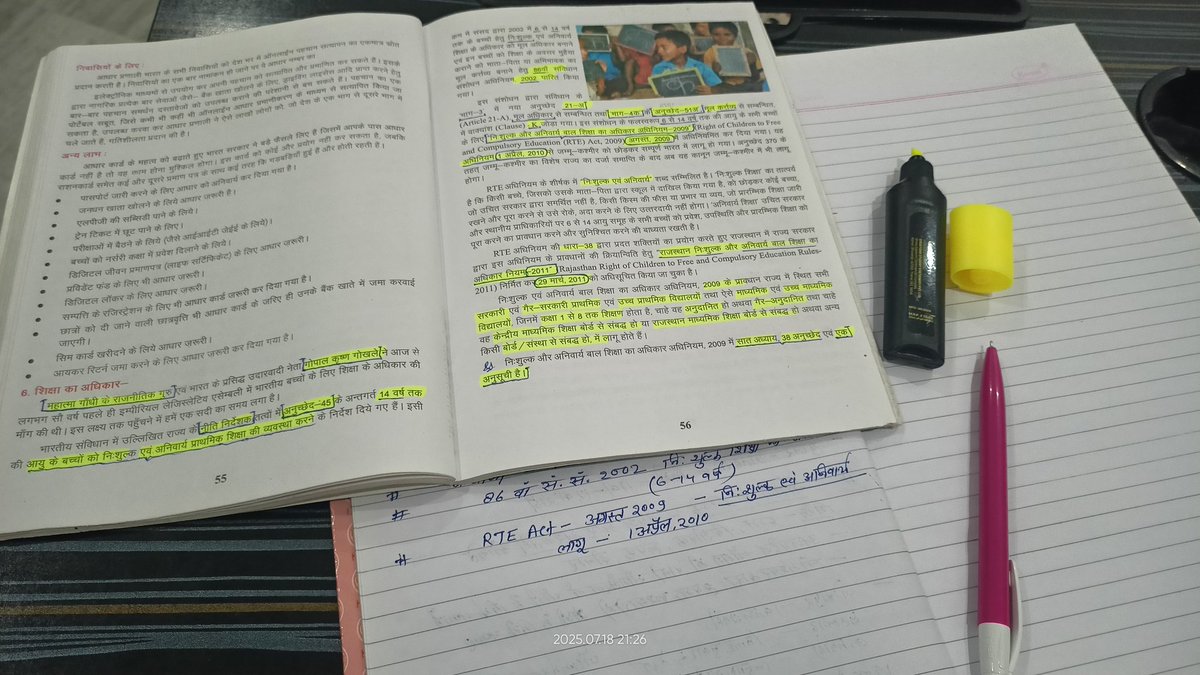 निवासियों के लिए :
आधार प्रणाली भारत के सभी निवासियों को देश भर में ऑनलाईन पहचान सत्यापन का एकमात्र स्रोत
प्रदान करती है। निवासियों का एक बार नामांकन हो जाने पर वे आधार नम्बर का
इलेक्ट्रोनिक माध्यमों से उपयोग कर अपनी पहचान को सत्यापित और प्रमाणित कर सकते हैं। इसके
द्वारा नागरिक प्रत्येक बार सेवाओं जैसे– बैंक खाता खोलने के लिए, ड्राइविंग लाइसेंस आदि प्राप्त करने हेतु
बार–बार पहचान समर्थन दस्तावेजों को उपलब्ध कराने की परेशानी से बच सकते हैं। पहचान का एक
पोर्टेबल सबूत, जिसे कभी भी कहीं भी ऑनलाईन आधार प्रमाणीकरण के माध्यम से सत्यापित किया जा
सकता है, उपलब्ध करवा कर आधार प्रणाली ने ऐसे लाखों लोगों को, जो देश के एक भाग से दूसरे भाग में
चले जाते हैं, गतिशीलता प्रदान की है।
अन्य लाभ :
आधार कार्ड के महत्व को बढ़ाते हुए भारत सरकार ने बड़े फैसले लिए हैं जिसमें आपके पास आधार
कार्ड नहीं है तो वह काम होना मुश्किल होगा। इस कार्ड को कोई और प्रयोग नहीं कर सकता है, जबकि
राशनकार्ड समेत कई और दूसरे प्रमाण पत्र के साथ कई तरह कि गड़बड़ियाँ हुई हैं और होती रहती हैं।
• पासपोर्ट जारी करने के लिए आधार को अनिवार्य कर दिया गया है।
• जनधन खाता खोलने के लिये आधार जरूरी है।
• एलपीजी की सब्सिडी पाने के लिये।
• ट्रेन टिकट में छूट पाने के लिए।
• परीक्षाओं में बैठने के लिये (जैसे आईआईटी जेईई के लिये)।
• बच्चों को नर्सरी कक्षा में प्रवेश दिलाने के लिये।
• डिजिटल जीवन प्रमाणपत्र (लाइफ सर्टिफिकेट) के लिए आधार जरूरी।
• प्रविडेंट फंड के लिए भी आधार जरूरी।
• डिजिटल लॉकर के लिए आधार जरूरी।
• सम्पत्ति के रजिस्ट्रेशन के लिए भी आधार कार्ड जरूरी कर दिया गया है।
• छात्रों को दी जाने वाली छात्रवृत्ति भी आधार कार्ड के जरिए ही उनके बैंक खाते में जमा करवाई
जाएगी।
• सिम कार्ड खरीदने के लिये आधार जरूरी।
• आयकर रिटर्न जमा करने के लिए आधार जरूरी कर दिया गया है।
6. शिक्षा का अधिकार–
महात्मा गाँधी के राजनीतिक गुरु एवं भारत के प्रसिद्ध उदारवादी नेता गोपाल कृष्ण गोखले ने आज से
लगभग सौ वर्ष पहले ही इम्पीरियल लेजिस्लेटिव एसेम्बली में भारतीय बच्चों के लिए शिक्षा के अधिकार की
माँग की थी। इस लक्ष्य तक पहुँचने में हमें एक सदी का समय लगा है।
भारतीय संविधान में उल्लिखित राज्य के नीति निर्देशक तत्वों में अनुच्छेद–45 के अन्तर्गत 14 वर्ष तक
की आयु के बच्चों को निःशुल्क एवं अनिवार्य प्राथमिक शिक्षा की व्यवस्था करने के निर्देश दिये गए हैं। इसी
55
क्रम में संसद द्वारा 2002 में 6 से 14 वर्ष
तक के बच्चों हेतु निःशुल्क एवं अनिवार्य
शिक्षा के अधिकार को मूल अधिकार बनाने
एवं इन बच्चों को शिक्षा के अवसर मुहैया
कराने को माता–पिता या अभिभावक का
मूल कर्त्तव्य बनाने हेतु 86वाँ संविधान
संशोधन अधिनियम, 2002 पारित किया
गया।
इस संशोधन द्वारा संविधान के
भाग–3 में नया अनुच्छेद 21–अ
(Article 21-A), मूल अधिकार से सम्बन्धित तथा भाग–4क के अनुच्छेद–51अ मूल कर्त्तव्य से सम्बन्धित,
में वाक्यांश (Clause) K जोड़ा गया। इस संशोधन के फलस्वरूप 6 से 14 वर्ष तक की आयु के सभी बच्चों
के लिए "निःशुल्क और अनिवार्य बाल शिक्षा का अधिकार अधिनियम–2009" (Right of Children to Free
and Compulsory Education (RTE) Act, 2009) अगस्त, 2009 में अधिनियमित कर दिया गया। यह
अधिनियम 1 अप्रैल, 2010 से जम्मू–कश्मीर को छोड़कर सम्पूर्ण भारत में लागू हो गया। अनुच्छेद 370 के
तहत् जम्मू–कश्मीर का विशेष राज्य का दर्जा समाप्ति के बाद अब यह कानून जम्मू–कश्मीर में भी लागू
होगा।
RTE अधिनियम के शीर्षक में "निःशुल्क एवं अनिवार्य" शब्द सम्मिलित हैं। 'निःशुल्क शिक्षा' का तात्पर्य
है कि किसी बच्चे, जिसको उसके माता–पिता द्वारा स्कूल में दाखिल किया गया है, को छोड़कर कोई बच्चा,
जो उचित सरकार द्वारा समर्थित नहीं है, किसी किस्म की फीस या प्रभार या व्यय, जो प्रारम्भिक शिक्षा जारी
रखने और पूरा करने से उसे रोके, अदा करने के लिए उत्तरदायी नहीं होगा। 'अनिवार्य शिक्षा' उचित सरकार
और स्थानीय प्राधिकारियों पर 6 से 14 आयु समूह के सभी बच्चों को प्रवेश, उपस्थिति और प्रारम्भिक शिक्षा को
पूरा करने का प्रावधान करने और सुनिश्चित करने की बाध्यता रखती है।
RTE अधिनियम की धारा–38 द्वारा प्रदत शक्तियों का प्रयोग करते हुए राजस्थान में राज्य सरकार
द्वारा इस अधिनियम के प्रावधानों की क्रियान्विति हेतु "राजस्थान निःशुल्क और अनिवार्य बाल शिक्षा का
अधिकार नियम–2011" (Rajasthan Right of Children to Free and Compulsory Education Rules-
2011) निर्मित कर 29 मार्च, 2011 को अधिसूचित किया जा चुका है।
निःशुल्क एवं अनिवार्य बाल शिक्षा का अधिकार अधिनियम, 2009 के प्राक्धान राज्य में स्थित सभी
सरकारी एवं गैर–सरकारी प्राथमिक एवं उच्च प्राथमिक विद्यालयों तथा ऐसे माध्यमिक एवं उच्च माध्यमिक
विद्यालयों, जिनमें कक्षा 1 से 8 तक शिक्षण होता है, चाहे वह अनुदानित हो अथवा गैर–अनुदानित तथा चाहे
वह केन्द्रीय माध्यमिक शिक्षा बोर्ड से संबद्ध हो या राजस्थान माध्यमिक शिक्षा बोर्ड से संबद्ध हो अथवा अन्य
किसी बोर्ड/संस्था से संबद्ध हो, में लागू होते हैं।
निःशुल्क और अनिवार्य बाल शिक्षा का अधिकार अधिनियम, 2009 में सात अध्याय, 38 अनुच्छेद एवं एक
अनुसूची है।
56
# 86 वाँ सं. सं. 2002 निः शुल्क शिक्षा
# (6-14 वर्ष)
RTE Act – अगस्त 2009 – निःशुल्क एवं अनिवार्य
# लागू – 1 अप्रैल, 2010
2025.07.18 21:26